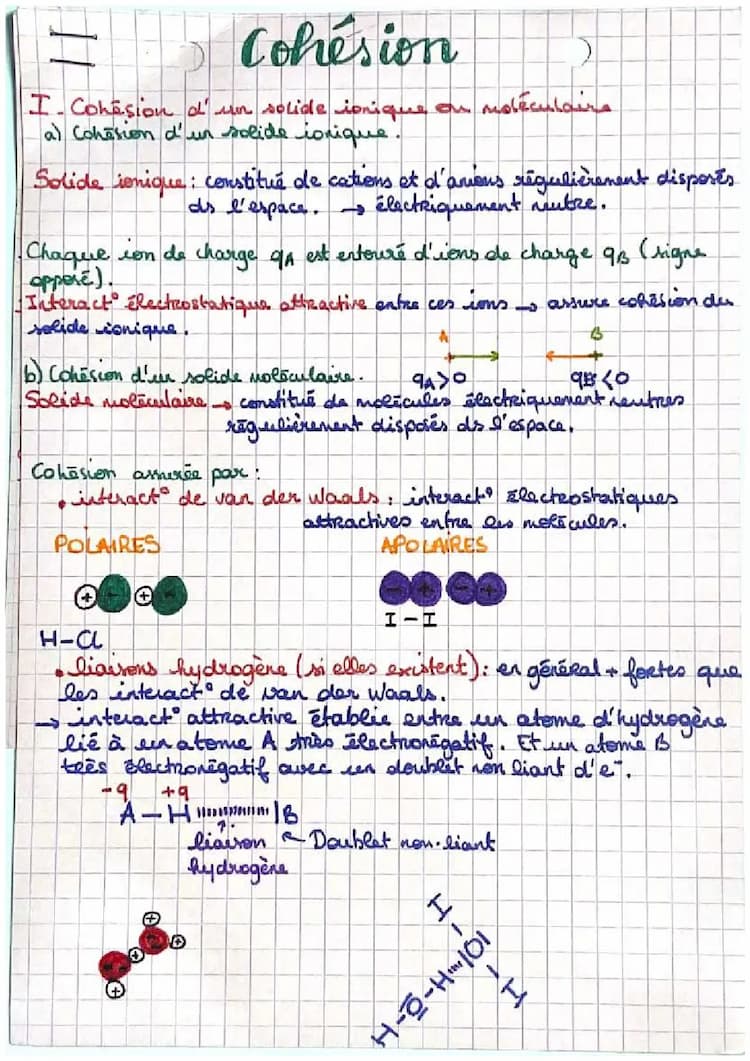 Cohésion
I - Cohésion d'un solide ionique ou moléculaire
a) Cohésion d'un solide ionique.
Solide ionique : constitué de cations et d'anions régulièrement disposés
ds l'espace. → électriquement neutre.
Chaque ion de charge qA est entouré d'ions de charge qB (signe
opposé).
Interact° électrostatique attractive entre ces ions → assure cohésion du
solide ionique.
A B
b) Cohésion d'un solide moléculaire. qA>0 qB<0
Solide moléculaire → constitué de molécules électriquement neutres
régulièrement disposés ds l'espace.
Cohésion assurée par :
• interact° de van der Waals : interact° électrostatiques
attractives entre les molécules.
POLAIRES APOLAIRES
+ - + - - + - +
I - I
H-Cl
• liaisons hydrogène (si elles existent) : en général + fortes que
les interact° de van der Waals.
→ interact° attractive établie entre un atome d'hydrogène
lié à un atome A très électronégatif. Et un atome B
très électronégatif avec un doublet non liant d'e⁻.
-q +q
A — H ıııııııııııııı |B
liaison Doublet non-liant
hydrogène
H - O - H ıııı |O| - H
- H